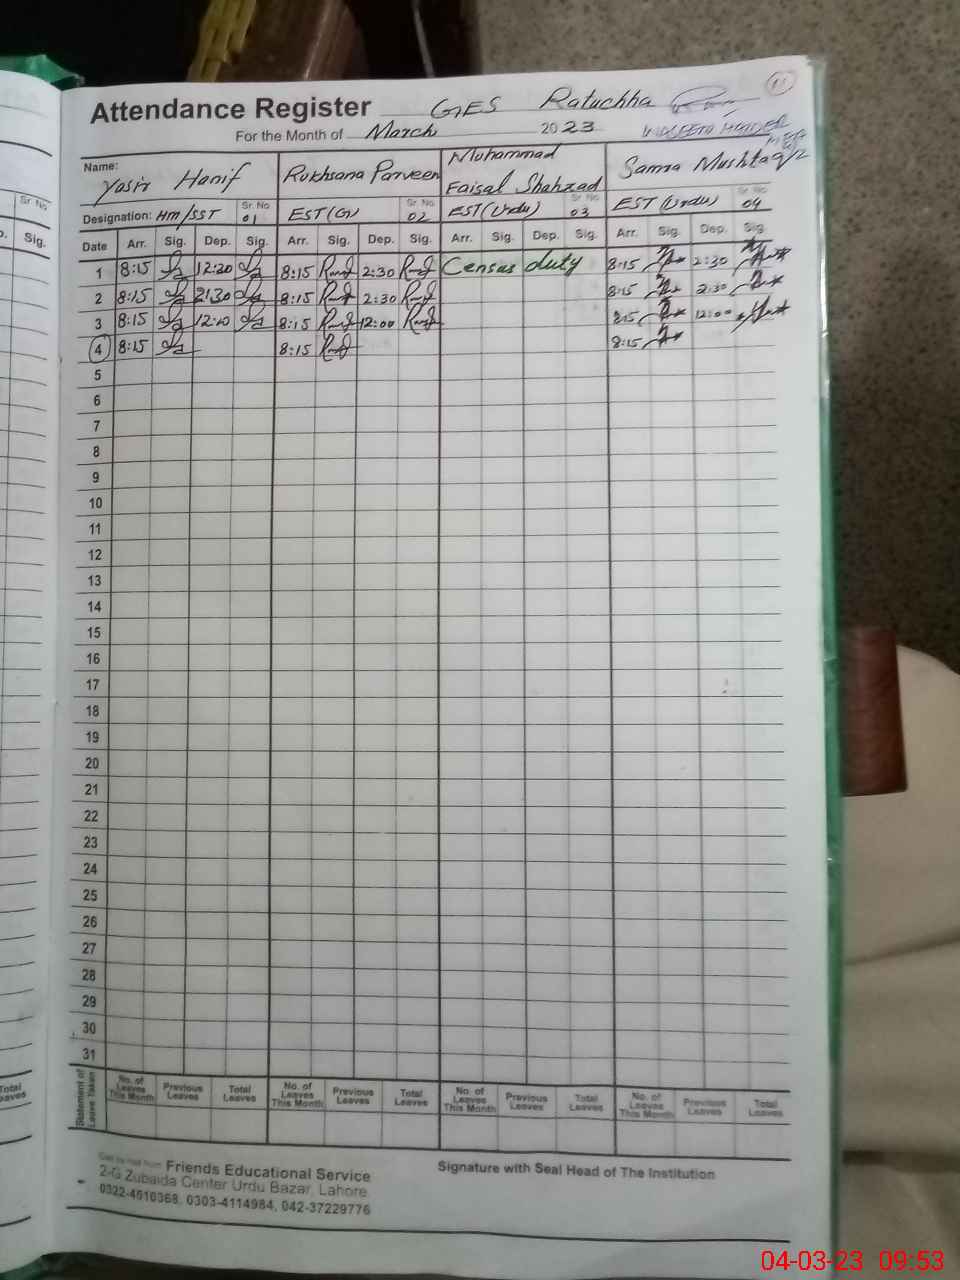 11
Attendance Register GES Ratuchha
For the Month of March 2023
Name: Yasir Hanif Rukhsana Parveen Muhammad Faisal Shahzad Samra Mushtaq
Sr No Sr No Sr No Sr No
Designation: Hm/SST 01 EST(G) 02 EST(Urdu) 03 EST(Urdu) 04
Date Arr. Sig. Dep. Sig. Arr. Sig. Dep. Sig. Arr. Sig. Dep. Sig. Arr. Sig. Dep. Sig.
1 8:15 12:20 8:15 2:30 Census duty 8:15 2:30
2 8:15 2:30 8:15 2:30 8:15 2:30
3 8:15 8:15 12:00 8:15 12:00
4 8:15 8:15 8:15
5
6
7
8
9
10
11
12
13
14
15
16
17
18
19
20
21
22
23
24
25
26
27
28
29
30
31
Statement of Leave Taken
No. of Leaves This Month Previous Leaves Total Leaves No. of Leaves This Month Previous Leaves Total Leaves No. of Leaves This Month Previous Leaves Total Leaves No. of Leaves This Month Previous Leaves Total Leaves
Friends Educational Service
Signature with Seal Head of The Institution
2-G Zubaida Center Urdu Bazar, Lahore
0322-4010368, 0303-4114984, 042-37229776
Sr No
Sig.
Total
04-03-23 09:53